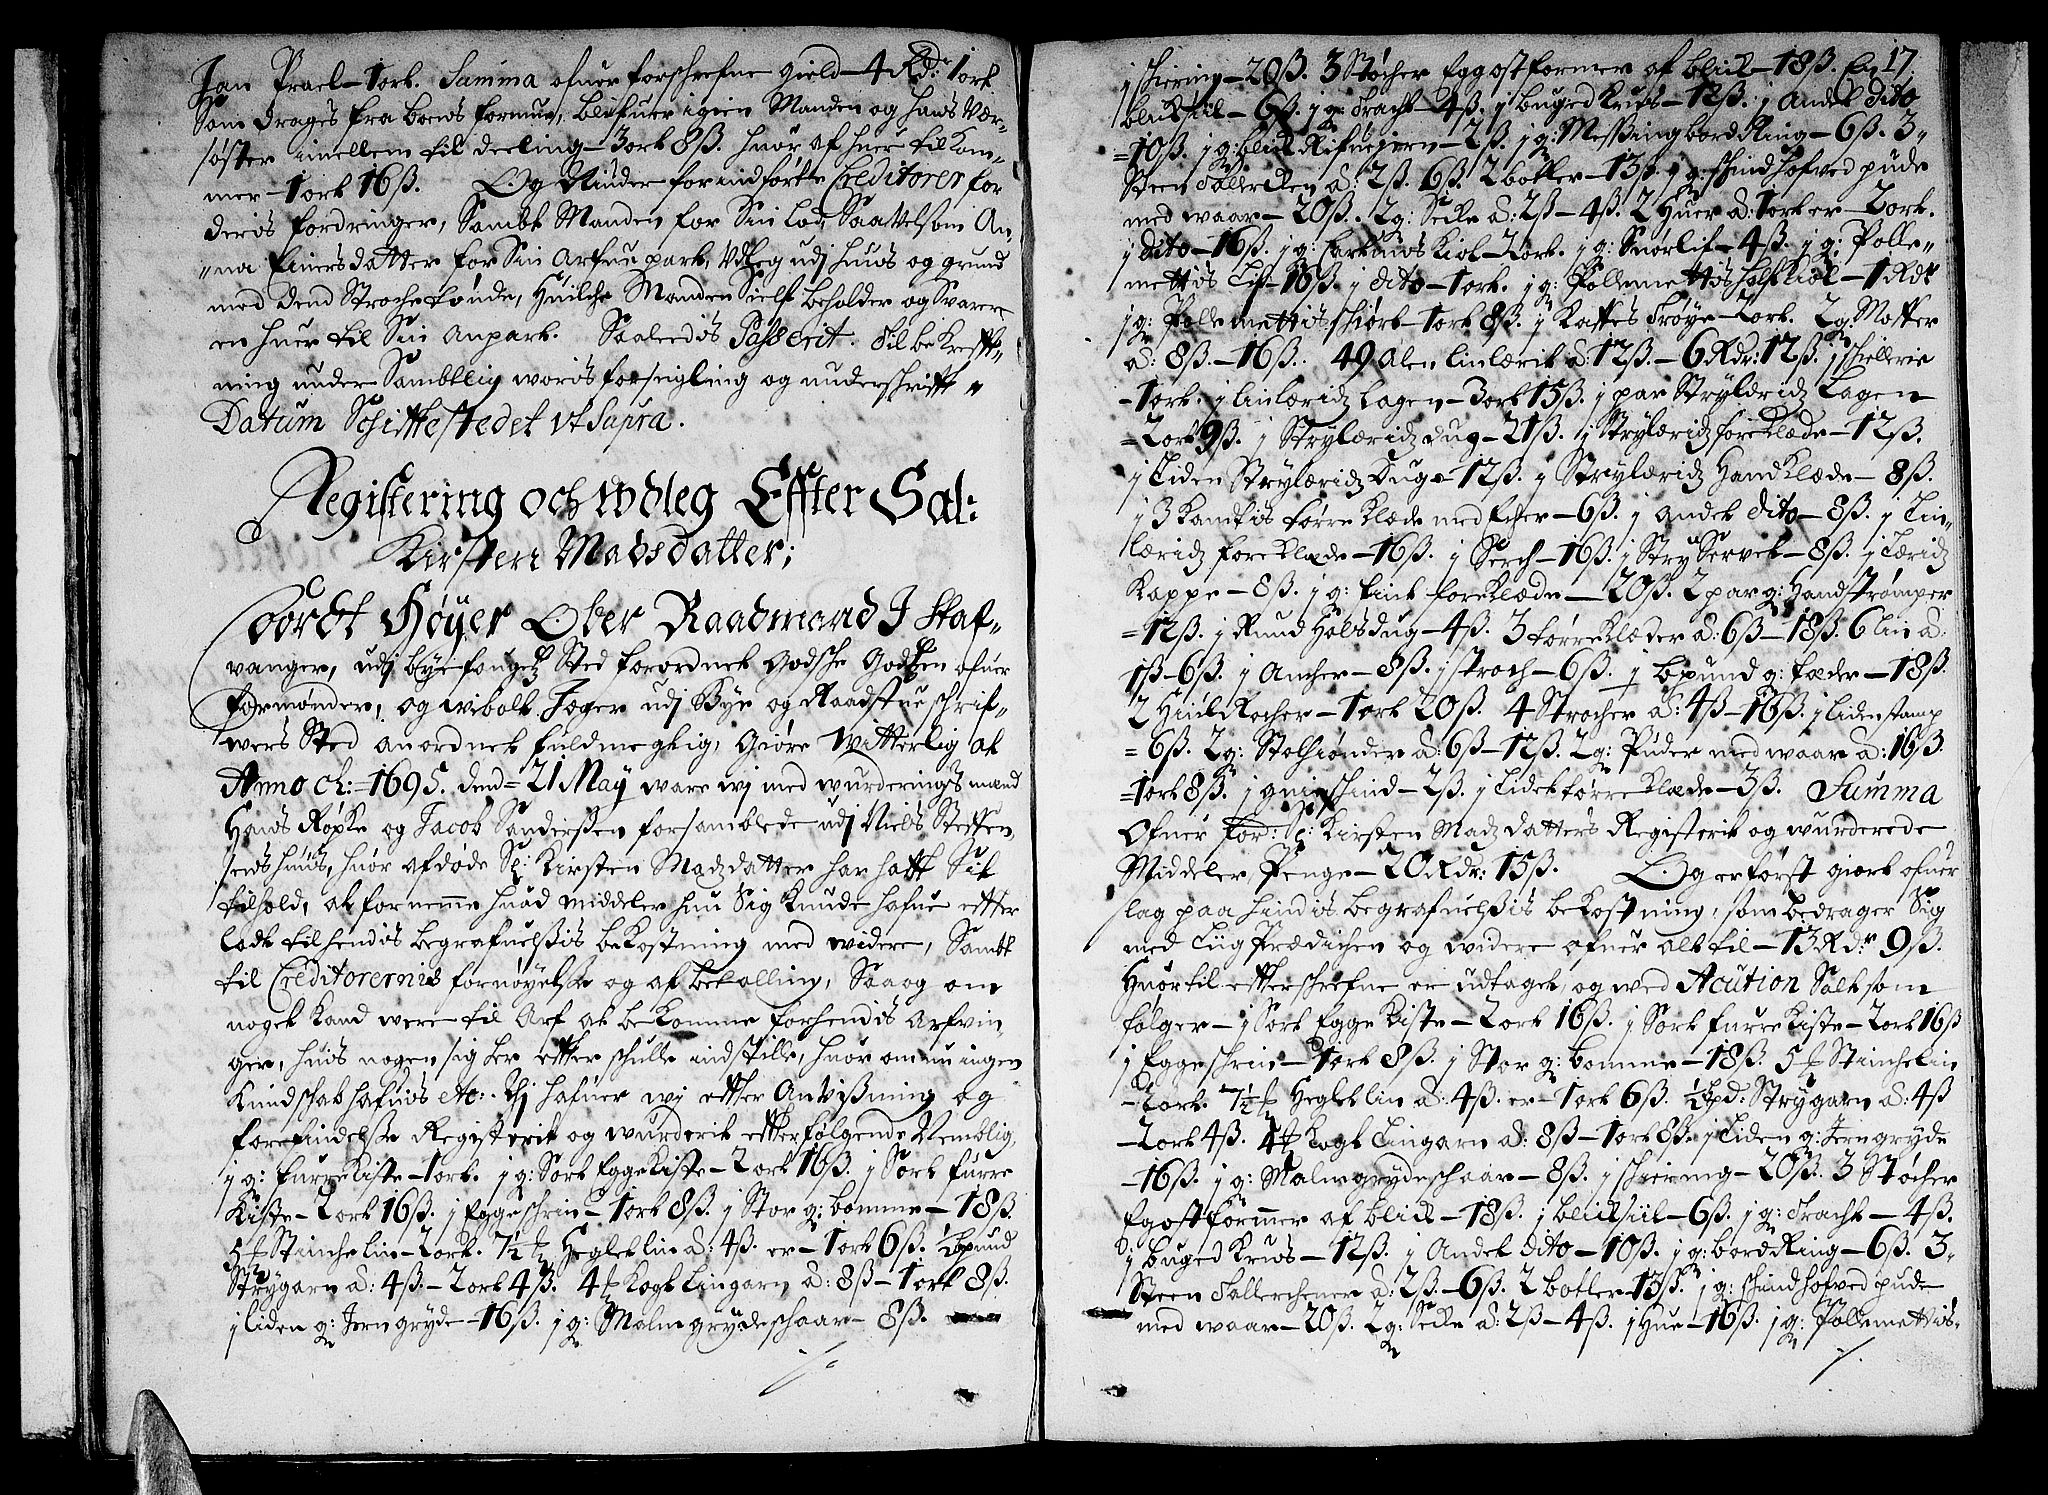 Jan Prael – 1 ort. Summa ofuer forschrefne gield – 4 Rdr 1 ort
Som drages fra boens formue, blifuer igien Manden og hans Vær-
søster imellem til deeling – 3 ort 8 ß. huor af huer tilkom-
mer – 1 ort 16 ß. Og Under for indførte Creditorer for
deris fordringer, Sambt Manden for Sin lod, Saavelsom An-
"na Einersdatter for Sin Arfue part, Vdleg udj huus og grund
med dend Stoche bønde, huilche Manden Sielf beholder og Svarer
en huer til Sin anpart. Saaledis Passerit. Til bekrefft-
ning under Sambtlig woris forseigling og underschrifft "
Datum Schifftestedet vt Supra.
Registering och wdleg Effter Sal:
Kirsten Madsdatter;
Cordt Høyer Ober Raadmand J Staf-
vanger, udj byefougetz Sted forordnet ofuer
formønder, og wibolt Jæger udj Bye og Raadstueschrif-
wers Sted anordnet fuldmegtig, Giøre Witterlig at
Anno ch: 1695. dend = 21 May ware wj med wurderings mænd
Hans Røpke og Jacob Sanderssen forsamblede udj Niels Steffen-
sens huus, huor afdøde Sl: Kirsten Madzdatter har hafft Sit
tilhold, at fornemme huad middeler hun Sig Kunde hafue effter
ladt til hendis begrafuelssis bekostning med widere, Sambt
til Creditorernis fornøyelse og afbetalling, Saa og om
noget Kand were til Arf at bekomme for hendis Arfvin-
ger, huis nogen sig her effter schulle indstille, huor om nu ingen
Kundschab hafuis etc. Thj hafuer wj effter Anvissning og
forefindelse Registerit og wurderit effterfølgende Nemblig,
j g: furre Kiste – 1 ort. j g: Sort Egge Kiste – 2 ort 16 ß. j Sort furre
Kiste – 2 ort 16 ß. j Eggeschrin – 1 ort 8 ß. j Stor g: bomme – 18 ß.
5 ℔ Stinche lin – 2 ort. 7½ ℔ Heglet lin a: 4 ß. er – 1 ort 6 ß. ½ bpund
Strygarn a: 4 ß – 2 ort 4 ß. 4 ℔ Kogt Lingarn a: 8 ß – 1 ort 8 ß.
j liden g: Jern gryde – 16 ß. j g: Malmgrydeschaar – 8 ß.
17
j schiering – 20 ß. 3 Støcher Egg ostformer af blick – 18 ß. En
blicksiil – 6 ß. j g: Tracht – 4 ß. j buged Kruus – 12 ß. j Andet dito
= 10 ß. j g: blick Rifuejern – 2 ß. j g: Messing bord Ring – 6 ß. 3 "
Steen Tallerken a: 2 ß. 6 ß. 2 botler – 13 ß. j g: schind hofvedpude
med waar – 20 ß. 2 g: Secke a: 2 ß – 4 ß. 2 Huer a: 1 ort er – 2 ort.
j dito – 16 ß. j g: Kiol – 2 ort. j g: Snørlif – 4 ß. j g: Polle-
mettis Lif – 16 ß. j dito – 1 ort. j g: Pollemettis Kiol – 1 Rdr
j g: Pollemettis schiørt – 1 ort 8 ß. j Kaffes Trøye – 2 ort. 2 g: Moffer
a: 8 ß – 16 ß. 49 Alen linlærit a: 12 ß. – 6 Rdr: 12 ß. j schillerie
– 1 ort. j linlæridz Lagen – 3 ort 15 ß. j par Strylæridz Lagen
= 2 ort 9 ß. j Strylæridz dug – 21 ß. j Strylæridz foreklæde – 12 ß.
j Liden Strylæridz Dug – 12 ß. j Strylæridz Handklæde – 8 ß.
j 3 Kandtis tørreklæde med – 6 ß. j andet dito – 8 ß. j Lin-
læridz foreklæde – 16 ß. j Serch – 16 ß. j Stry Servet – 8 ß. j Læridz
Kappe – 8 ß. j g: foreklæde – 20 ß. 2 par g: Handstrømper
= 12 ß. j Rund Halsdug – 4 ß. 3 tørreklæder a: 6 ß – 18 ß. 6 lin a:
1 ß – 6 ß. j Ancher – 8 ß. j stroch – 6 ß. j bpund g: fæder – 18 ß.
2 Hiuel Rocher – 1 ort 20 ß. 4 Strocher a: 4 ß – 16 ß. j liden stamp
= 6 ß. 2 g: Stolhiønder a: 6 ß – 12 ß. 2 g: Puder med waar a: 16 ß
= 1 ort 8 ß. j schind – 2 ß. j Lidet tørreklæde – 3 ß. Summa
Ofuer for: Sl: Kirsten Madzdatters Registerit og wurderede
Middeler, Penge – 20 Rdr: 15 ß. Og er først giort ofuer
slag paa hindis begrafuelssis bekostning, som bedrager Sig
med Liig Prædichen og widere ofuer alt til – 13 Rdr 9 ß.
Huor til effterschrefne er udtaget, og wed Acution Solt som
følger – j Sort Egge Kiste – 2 ort 16 ß. j Sort furre Kiste – 2 ort 16 ß
j Eggeschrin – 1 ort 8 ß. j Stor g: bomme – 18 ß. 5 ℔ Stinchelin
– 2 ort. 7½ ℔ Heglet lin a: 4 ß. er – 1 ort 6 ß. ½ bpd: Strygarn a: 4 ß
– 2 ort 4 ß. 4 ℔ Kogt Lingarn a: 8 ß – 1 ort 8 ß. j Liden g: Jerngryde
– 16 ß. j g: Malmgrydeschaar – 8 ß. j schiering – 20 ß. 3 Støcher
Egostformer af blick – 18 ß. j blicksiil – 6 ß. j g: Tracht – 4 ß.
j buged Kruus – 12 ß. j Andet dito – 10 ß. j g: bord Ring – 6 ß. 3 "
Steen Tallerchener a: 2 ß. – 6 ß. 2 botler – 13 ß. j g: schind hofved pude
med waar – 20 ß. 2 g: Secke a: 2 ß – 4 ß. j Hue – 16 ß. j g: Pollemettis-